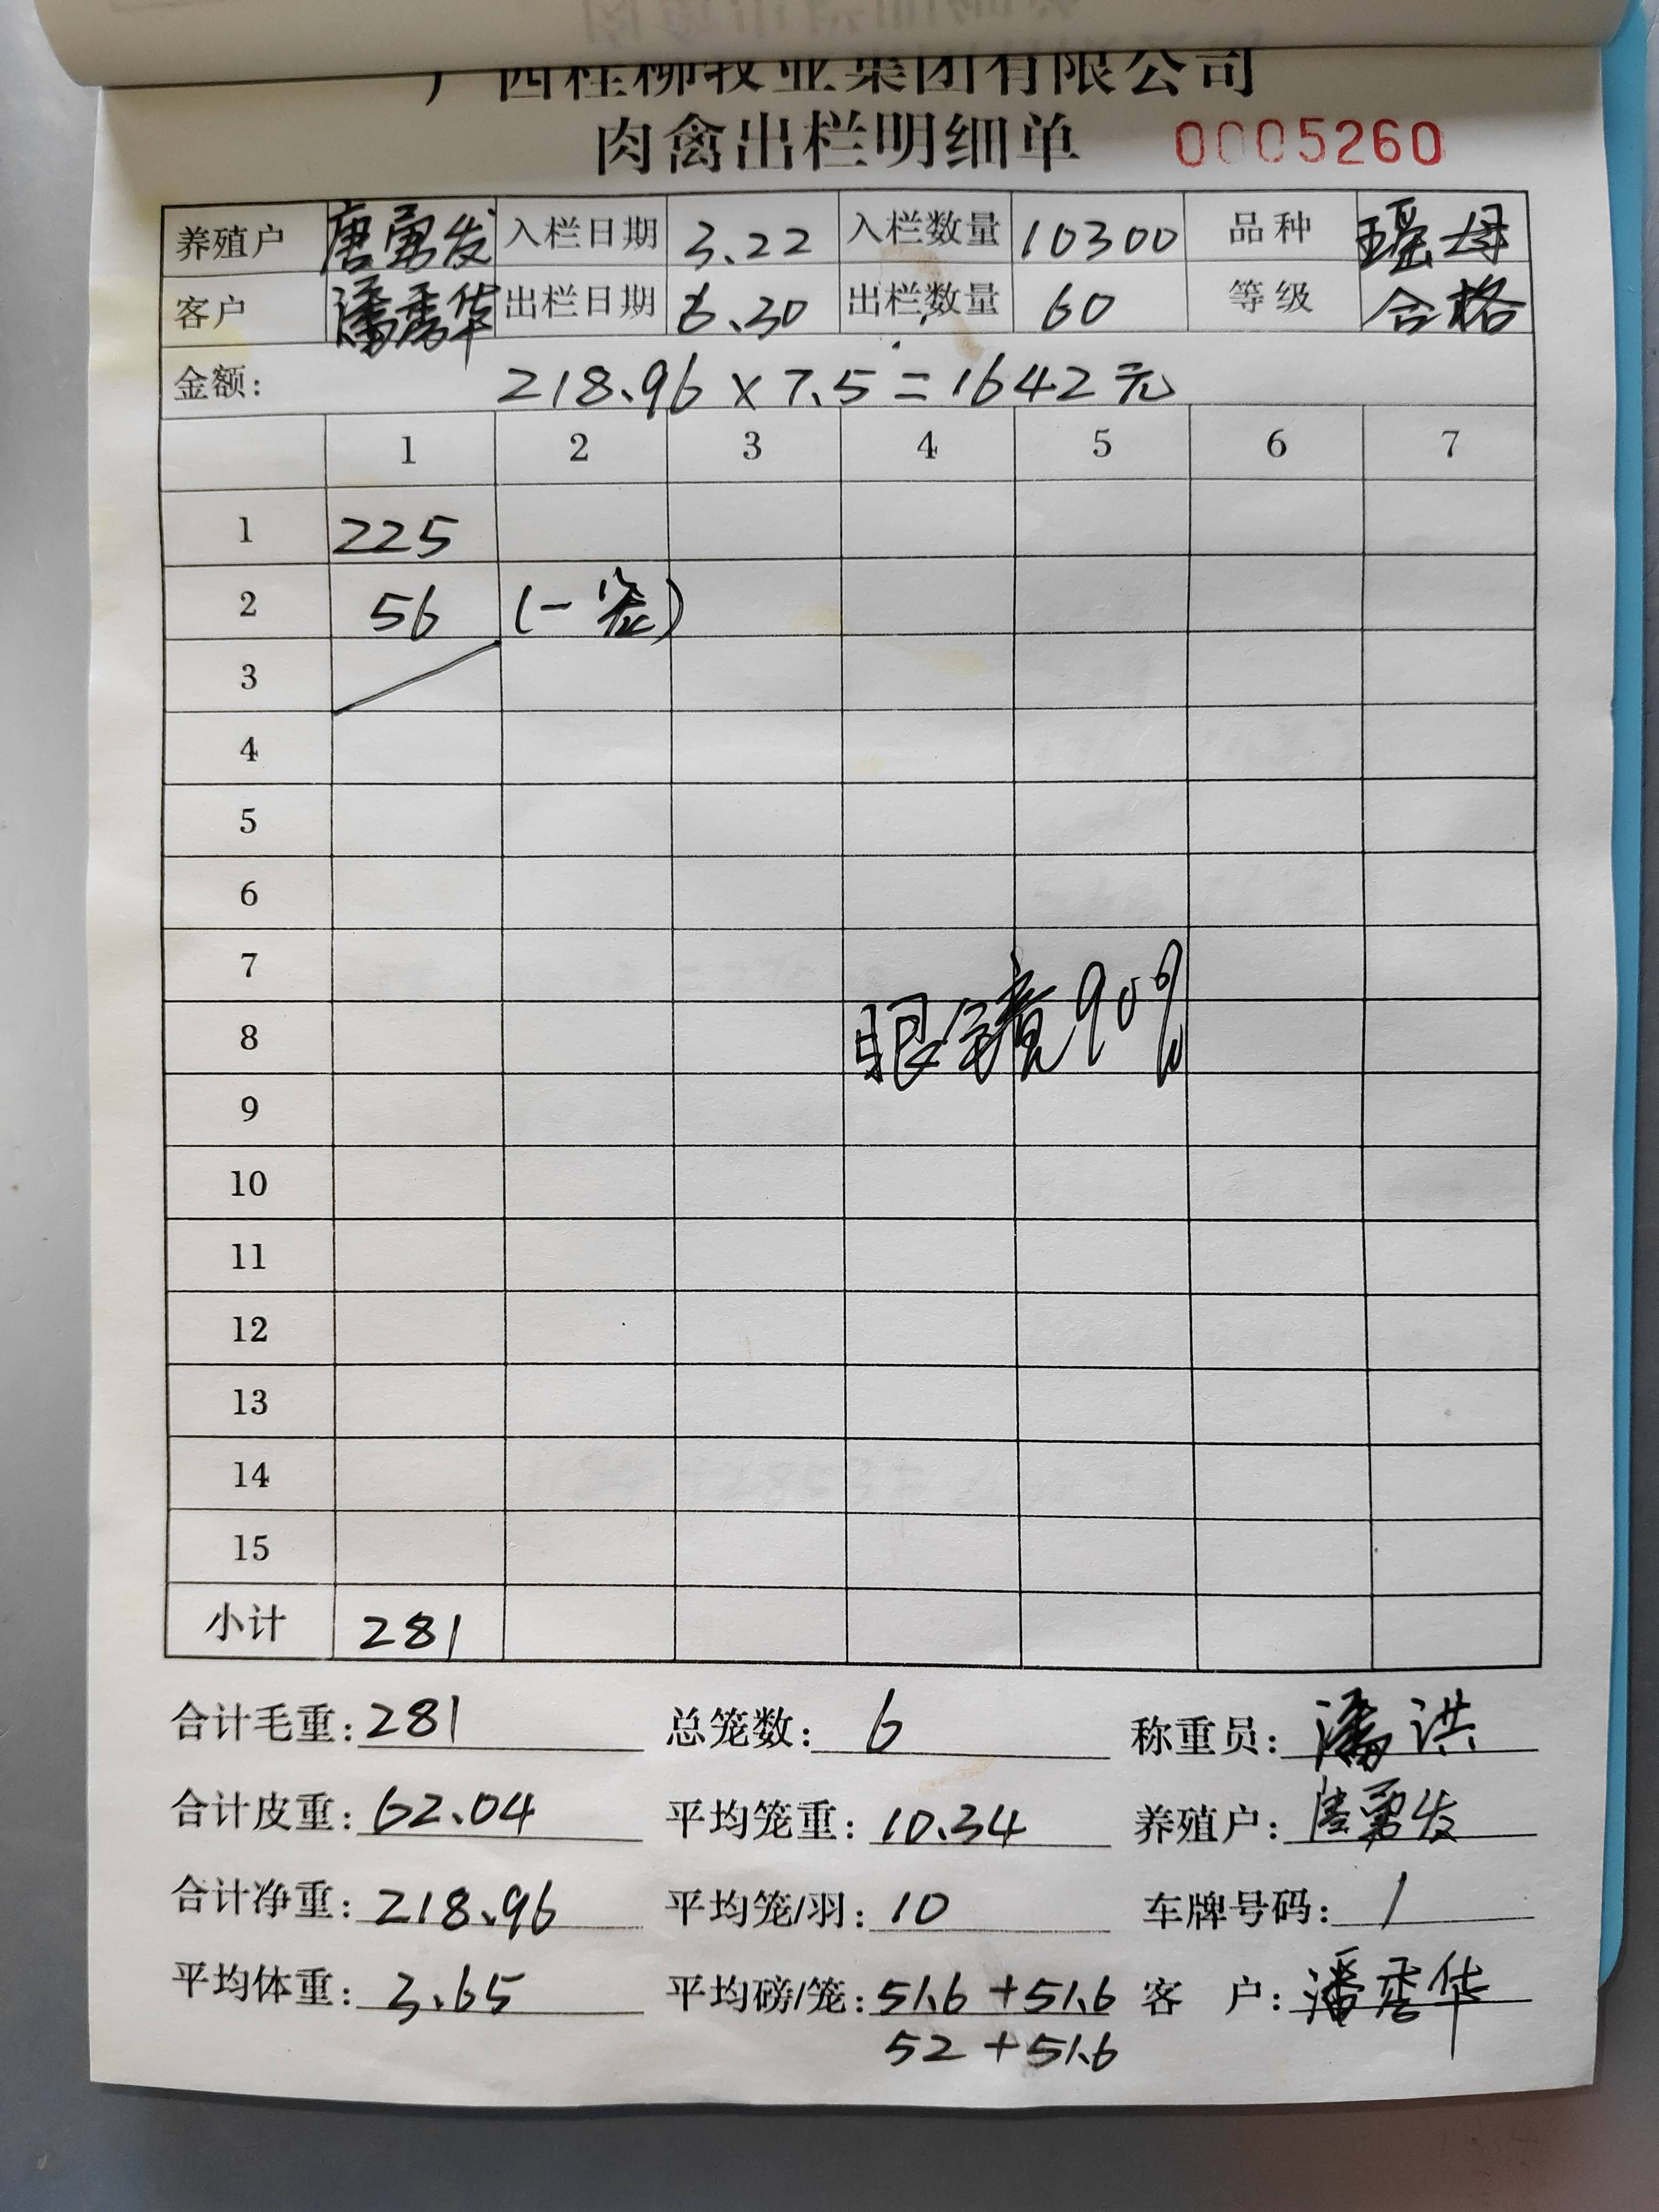 广西桂柳牧业集团有限公司
肉禽出栏明细单 0005260
养殖户 唐勇发 入栏日期 3.22 入栏数量 10300 品种 瑶母
客户 潘秀华 出栏日期 6.30 出栏数量 60 等级 合格
金额: 218.96 × 7.5 = 1642元
1 2 3 4 5 6 7
1 225
2 56 (一笼)
3
4
5
6
7
8 眼镜90%
9
10
11
12
13
14
15
小计 281
合计毛重: 281 总笼数: 6 称重员: 潘洪
合计皮重: 62.04 平均笼重: 10.34 养殖户: 唐勇发
合计净重: 218.96 平均笼/羽: 10 车牌号码: /
平均体重: 3.65 平均磅/笼: 51.6 + 51.6 客 户: 潘秀华
52 + 51.6